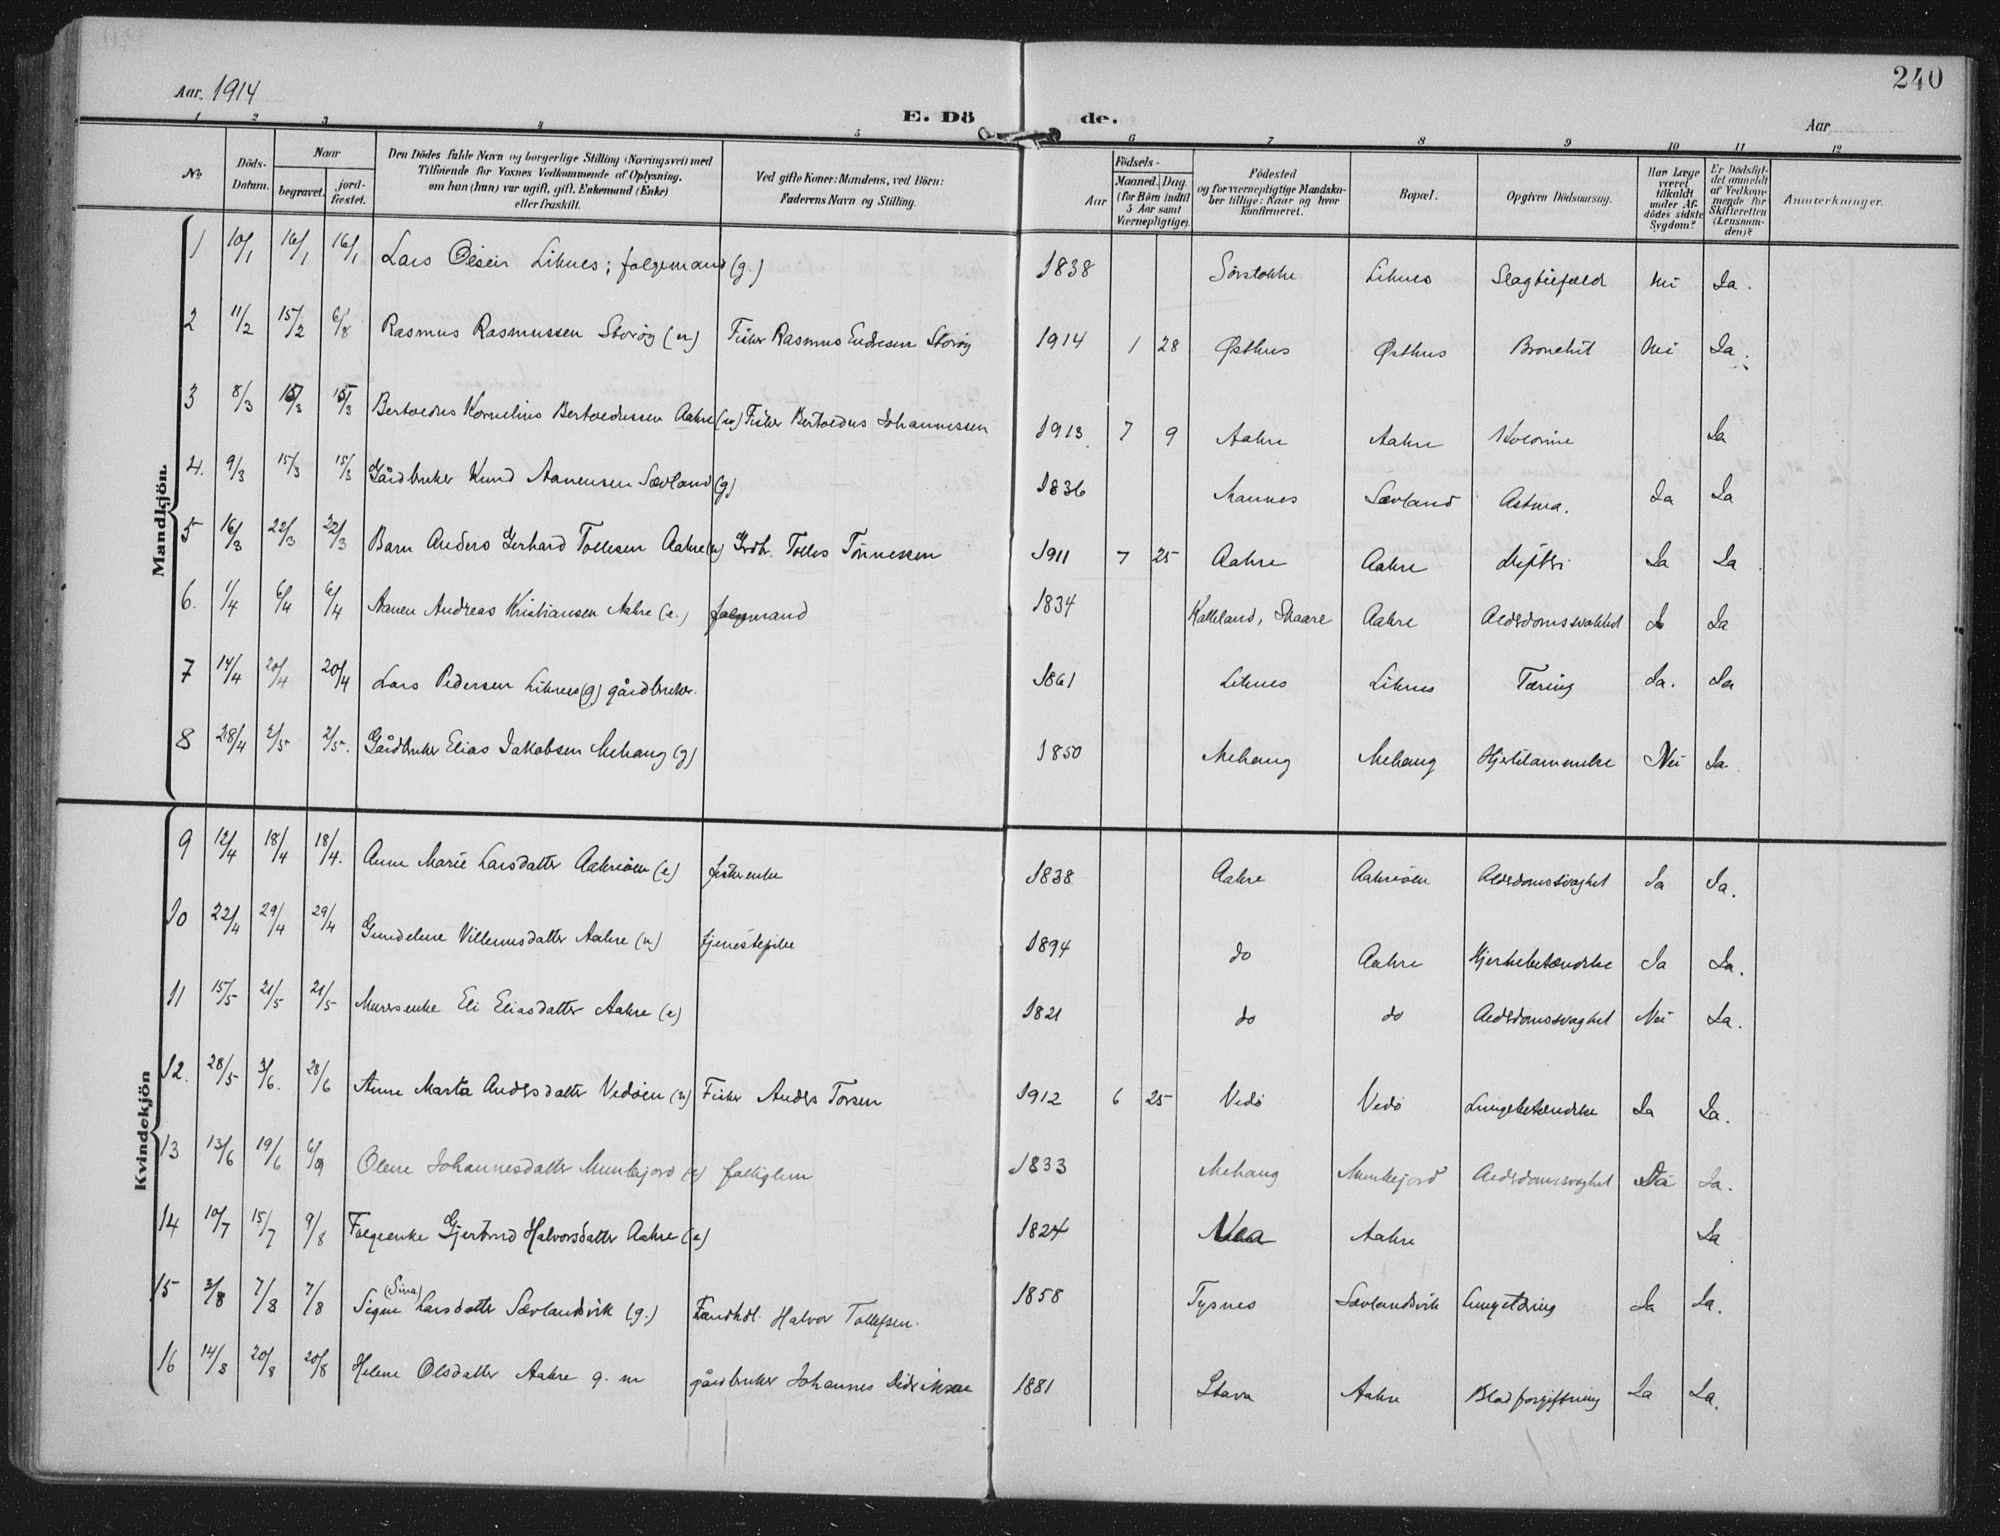 240
Aar. 1914
E. Döde.
Aar
1 2 3 4 5 6 7 8 9 10 11 12
No
Döds-Datum.
Naar
begravet.
jord-fæstet.
Den Dödes fulde Navn og borgerlige Stilling (Næringsvei) med
Tilföiende for Voxnes Vedkommende af Oplysning,
om han (hun) var ugift, gift, Enkemand (Enke)
eller fraskilt.
Ved gifte Koner: Mandens, ved Börn:
Faderens Navn og Stilling.
Födsels-
Aar
Maaned. Dag.
(for Börn indtil
5 Aar samt
Værnepligtige).
Födested
og for værnepligtige Mandska-
ber tillige: Naar og hvor
konfirmeret.
Bopæl.
Opgiven Dödsaarsag.
Har Læge
været
tilkaldt
under Af-
dödes sidste
Sygdom?
Er Dödsfal-
det anmeldt
af Vedkom-
mende for
Skifteretten
(Lensman-
den)?
Anmerkninger.
Mandkjön.
1 10/1 16/1 16/1 Lars Olsen Liknes; folgemand (g.) 1838 Sörstokke Liknes Slagtilfæld Nei Ja.
2 11/2 15/2 6/8 Rasmus Rasmussen Storöy (u) Fisker Rasmus Endresen Storöy 1914 1 28 Østhus Østhus Bronchit Nei Ja.
3 8/3 15/3 15/3 Bertoldus Kornelius Bertoldussen Aakre (u) Fisker Bertoldus Johannessen 1913 7 9 Aakre Aakre Kolorine Ja
4. 9/3 15/3 15/3 Gårdbruker Knud Aanensen Sævland (g) 1836 Mannes Sævland Astma. Ja Ja
5 16/3 22/3 22/3 Barn Anders Gerhard Tollesen Aakre (u) Grdbr. Tolles Tönnessen 1911 7 25 Aakre Aakre Difteri Ja Ja
6. 1/4 6/4 6/4 Aanen Andreas Kristiansen Aakre (e.) folgemand 1834 Kalleland, Skaare Aakre Alderdomssvakhed Ja
7 14/4 20/4 20/4 Lars Pedersen Liknes (g) gårdbruker. 1861 Liknes Liknes Tæring Ja. Ja
8 28/4 2/5 2/5. Gårdbruker Elias Jakobsen Mehaug (g) 1850 Mehaug Mehaug Hjertelammelse Nei Ja
Kvindekjön
9 12/4 18/4 18/4. Anne Marie Larsdatter Aakreöen (e) fiskerenke 1838 Aakre Aakreöen Alderdomssvaghet Ja Ja.
10 22/4 29/4 29/4 Gundeline Villumsdatter Aakre (u) tjenestepike 1894 do Aakre Hjernebetændelse Ja Ja.
11 15/5 21/5 21/5 Murersenke Eli Eliasdatter Aakre (e) 1821 do do Alderdomssvaghet Nei Ja.
12. 28/5 3/6. 28/6 Anne Marta Andersdatter Vedöen (u) Fisker Anders Torsen 1912 6 25 Vedö Vedö Lungebetændelse Ja Ja.
13 13/6 19/6 6/9 Olene Johannesdatter Munkejord (e) fattiglem 1833 Mehaug Munkejord Alderdomssvaghet Ja.
14 10/7 15/7 9/8 Folgeenke Gjertrud Halvorsdatter Aakre (e) 1824 Nea Aakre Ja
15 3/8 7/8 7/8 Signe (Sina) Larsdatter Sævlandsvik (g.) Landhdl. Halvor Tollefsen. 1858 Tysnes Sævlandsvik Lungetæring Ja Ja.
16 14/8 20/8 20/8 Helene Olsdatter Aakre g. m gårdbruker Johannes Didriksen 1881 Stava Aakre Blodforgiftning Ja Ja.